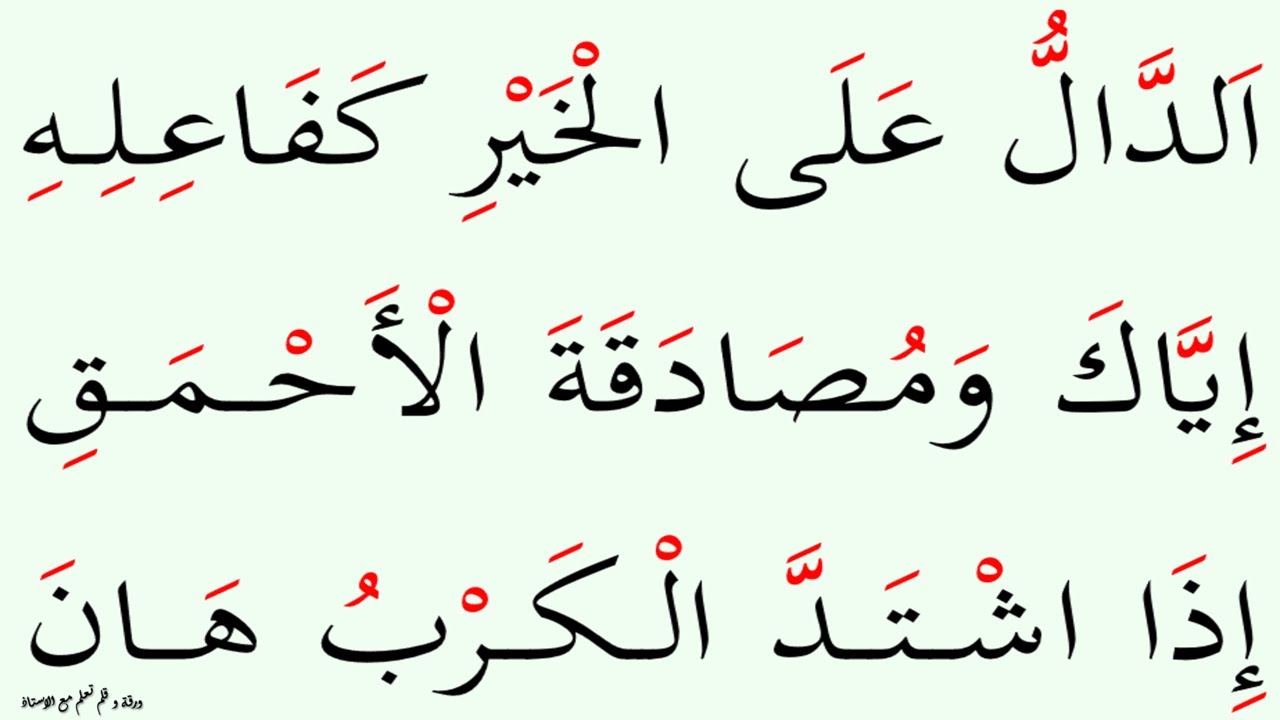 اَلدَّالُّ عَلَى الْخَيْرِ كَفَاعِلِهِ
إِيَّاكَ وَمُصَادَقَةَ الْأَحْـمَـقِ
إِذَا اشْـتَـدَّ الْـكَـرْبُ هَـانَ
ورقة و قلم تعلم مع الاستاذ